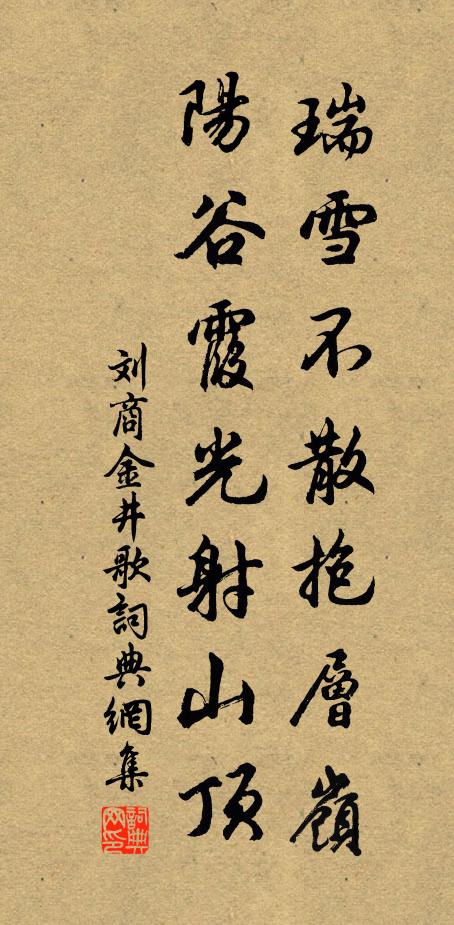 瑞雪不散抱層嶺
陽谷霞光射山頂
刘商金井歌詞典網集
詞典网印